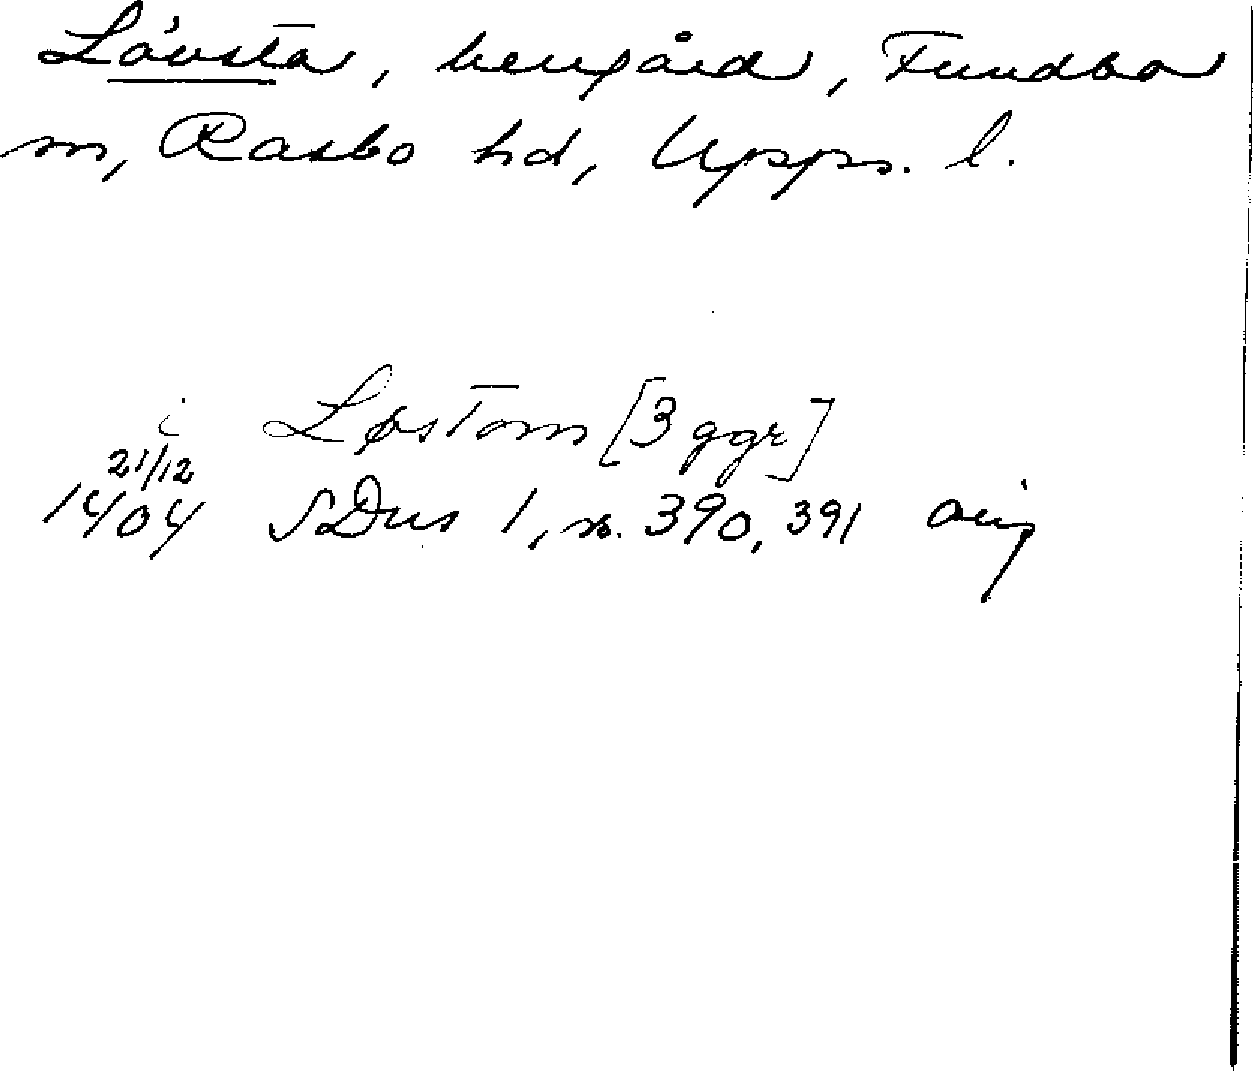 Lövsta, herrgård, Funbo
sn, Rasbo hd, Upps. l.
i Løstom [3 ggr]
21/12
1404 SDns 1, s. 390, 391 orig